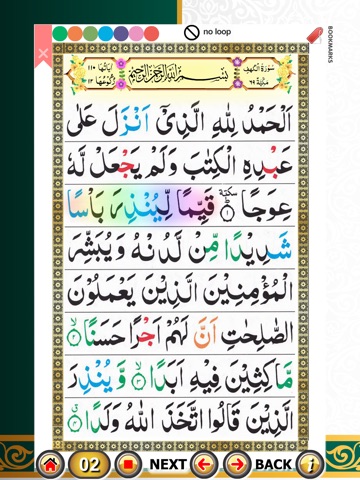 no loop
BOOKMARKS
سُوْرَةُ الْكَهْفِ
مَكِّيَّةٌ ٦٩
بِسْمِ اللهِ الرَّحْمٰنِ الرَّحِيْمِ
اٰيَاتُهَا ١١٠
رُكُوْعُهَا ١٢
اَلْحَمْدُ لِلّٰهِ الَّذِيْٓ اَنْزَلَ عَلٰى
عَبْدِهِ الْكِتٰبَ وَلَمْ يَجْعَلْ لَّهٗ
عِوَجًا ۜ سكتة ١ قَيِّمًا لِّيُنْذِرَ بَاْسًا
شَدِيْدًا مِّنْ لَّدُنْهُ وَيُبَشِّرَ
الْمُؤْمِنِيْنَ الَّذِيْنَ يَعْمَلُوْنَ
الصّٰلِحٰتِ اَنَّ لَهُمْ اَجْرًا حَسَنًا ۙ ٢
مَّاكِثِيْنَ فِيْهِ اَبَدًا ۙ ٣ وَّيُنْذِرَ
الَّذِيْنَ قَالُوا اتَّخَذَ اللّٰهُ وَلَدًا ۗ ٤
02 NEXT BACK i